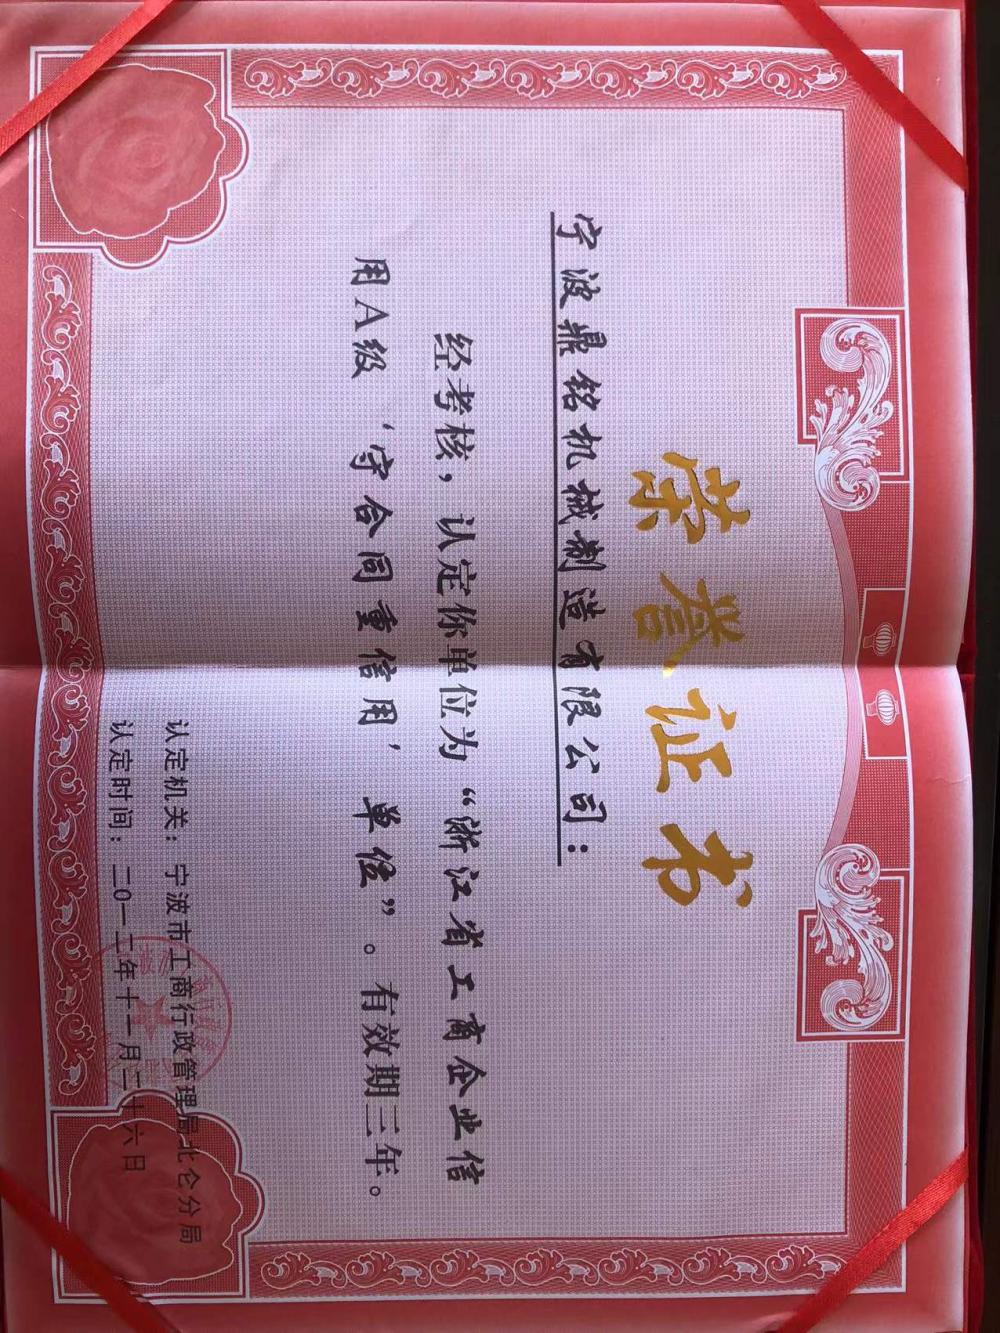 荣誉证书
宁波鼎铭机械制造有限公司：
经考核，认定你单位为“浙江省工商企业信
用A级‘守合同重信用’单位”。有效期三年。
认定机关：宁波市工商行政管理局北仑分局
认定时间：二0一二年十一月二十六日